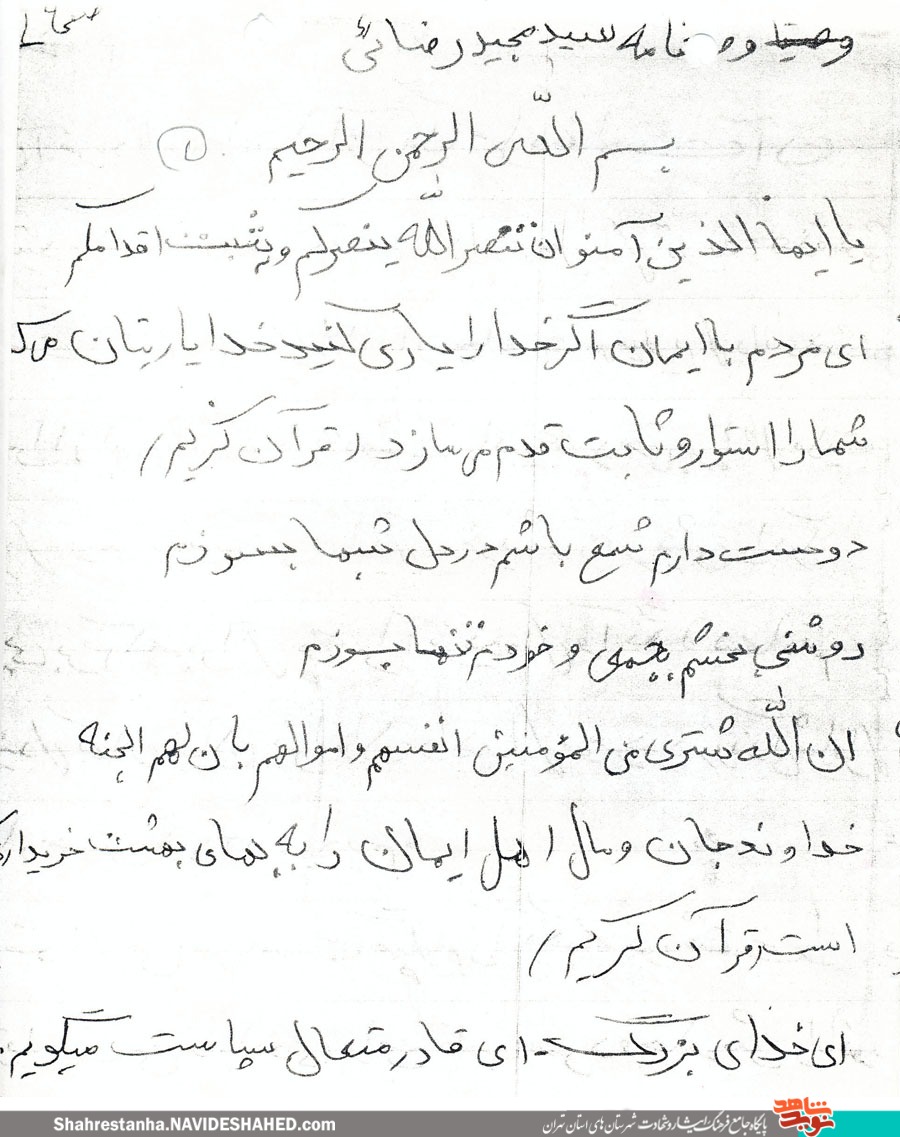 صفحه ۱
وصیت نامه سید مجید رضائی
بسم الله الرحمن الرحیم
یا ایها الذین آمنو ان تنصر الله ینصرکم و یثبت اقدامکم
ای مردم با ایمان اگر خدا را یاری کنید خدا یاریتان می‌ک
شما را استوار و ثابت قدم می‌سازد (قرآن کریم)
دوست دارم شمع باشم در دل شبها بسوزم
روشنی بخشم بجمعی و خودم تنها بسوزم
ان الله شتری من المؤمنین انفسهم و اموالهم بان لهم الجنه
خداوند جان و مال اهل ایمان را به بهای بهشت خریدار
است (قرآن کریم)
ای خدای بزرگ ای قادر متعال سپاست میگویم
Shahrestanha.NAVIDESHAHED.com
پایگاه جامع فرهنگ ایثار و شهادت شهرستان های استان تهران
نوید شاهد